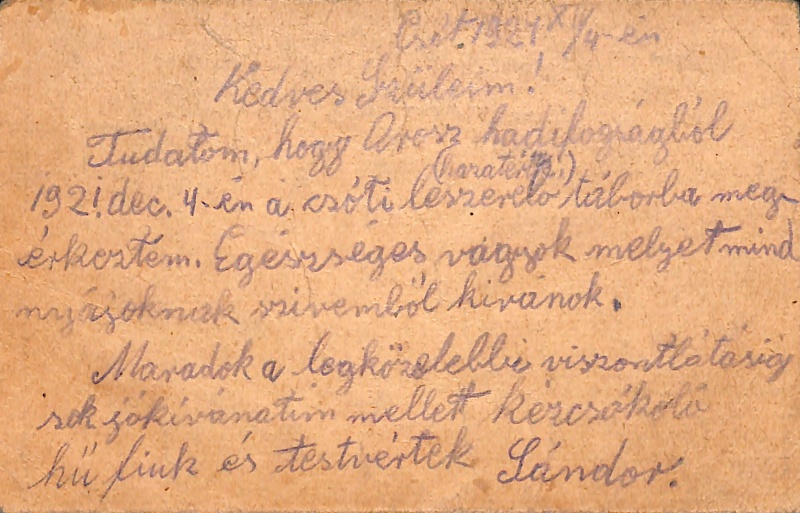 Csót. 1921 XII/4-én
Kedves Szüleim!
Tudatom, hogy Orosz hadifogságból
(hazatérő!)
1921. dec. 4-én a csóti leszerelő táborba meg-
érkeztem. Egészséges vagyok melyet mind
nyájoknak szivemből kivánok.
Maradok a legközelebbi viszontlátásig
sok jókívánatim mellett kézcsókoló
hű fiuk és testvértek Sándor.